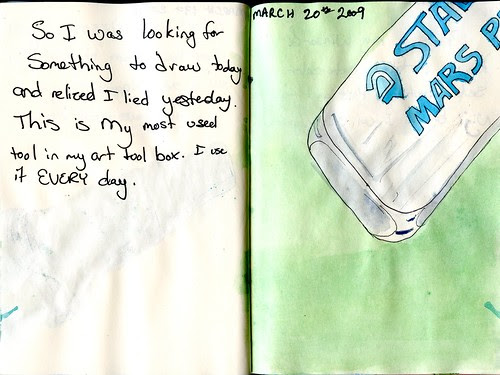 So I was looking for
Something to draw today
and relized I lied yesterday.
This is my most used
tool in my art tool box. I use
it EVERY day.
MARCH 20th 2009
STAE
MARS P